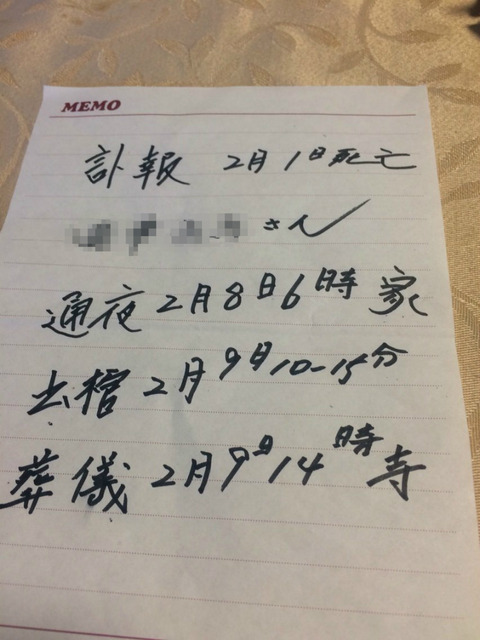 MEMO
訃報 2月1日死亡
さん
通夜2月8日6時家
出棺2月9日10-15分
葬儀2月9日14時寺